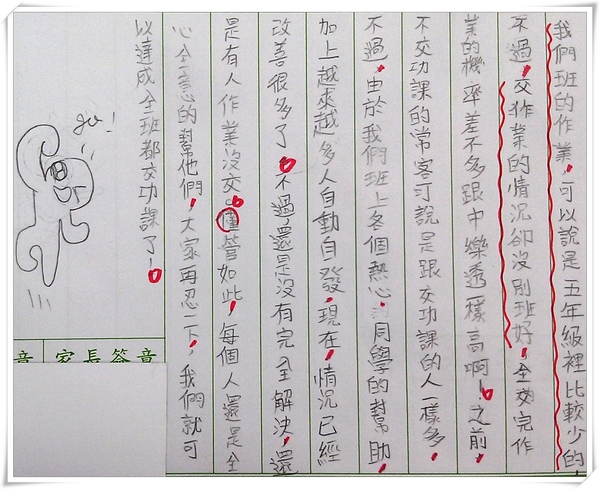 我們班的作業，可以說是五年級裡比較少的，
不過，交作業的情況卻沒別班好，全交完作
業的機率差不多跟中樂透一樣高啊！之前，
不交功課的常客可說是跟交功課的人一樣多，
不過，由於我們班上各個熱心同學的幫助，
加上越來越多人自動自發，現在，情況已經
改善很多了。不過，還是沒有完全解決，還
是有人作業沒交。僅管如此，每個人還是全
心全意的幫他們，大家再忍一下，我們就可
以達成全班都交功課了！
go!
家長簽章
章